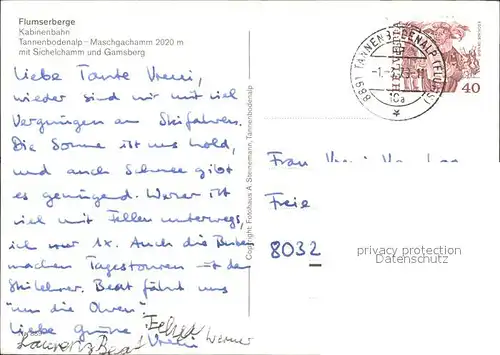 Flumserberge
Kabinenbahn
Tannenbodenalp – Maschgachamm 2020 m
mit Sichelchamm und Gamsberg
Liebe Tante Vreni,
wieder sind wir mit viel
Vergnügen am Skifahren.
Die Sonne ist uns hold,
und auch Schnee gibt
es genügend. Werner ist
viel mit Fellen unterwegs,
ich nur 1x. Auch die Buben
machen Tagestouren mit dem
Skilehrer. Beat fährt uns
"um die Ohren".
Liebe Grüsse
Vreni Werner
Laurenz Beat
Copyright: Fotohaus A. Steinemann, Tannenbodenalp
8891 TANNENBODENALP (FLUMS)
10a
HELVETIA
40
Frau Vreni
Freie
8032
privacy protection
Datenschutz